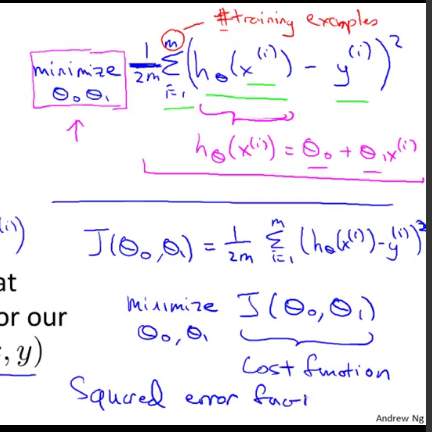 #training examples
minimize θ₀ θ₁ 1/2m Σᵢ₌₁ᵐ (h_θ(x⁽ⁱ⁾) - y⁽ⁱ⁾)²
h_θ(x⁽ⁱ⁾) = θ₀ + θ₁x⁽ⁱ⁾
⁽ⁱ⁾) J(θ₀,θ₁) = 1/2m Σᵢ₌₁ᵐ (h_θ(x⁽ⁱ⁾)-y⁽ⁱ⁾)²
at
minimize θ₀, θ₁ J(θ₀, θ₁)
or our
, y)
Cost function
Squared error
Andrew Ng